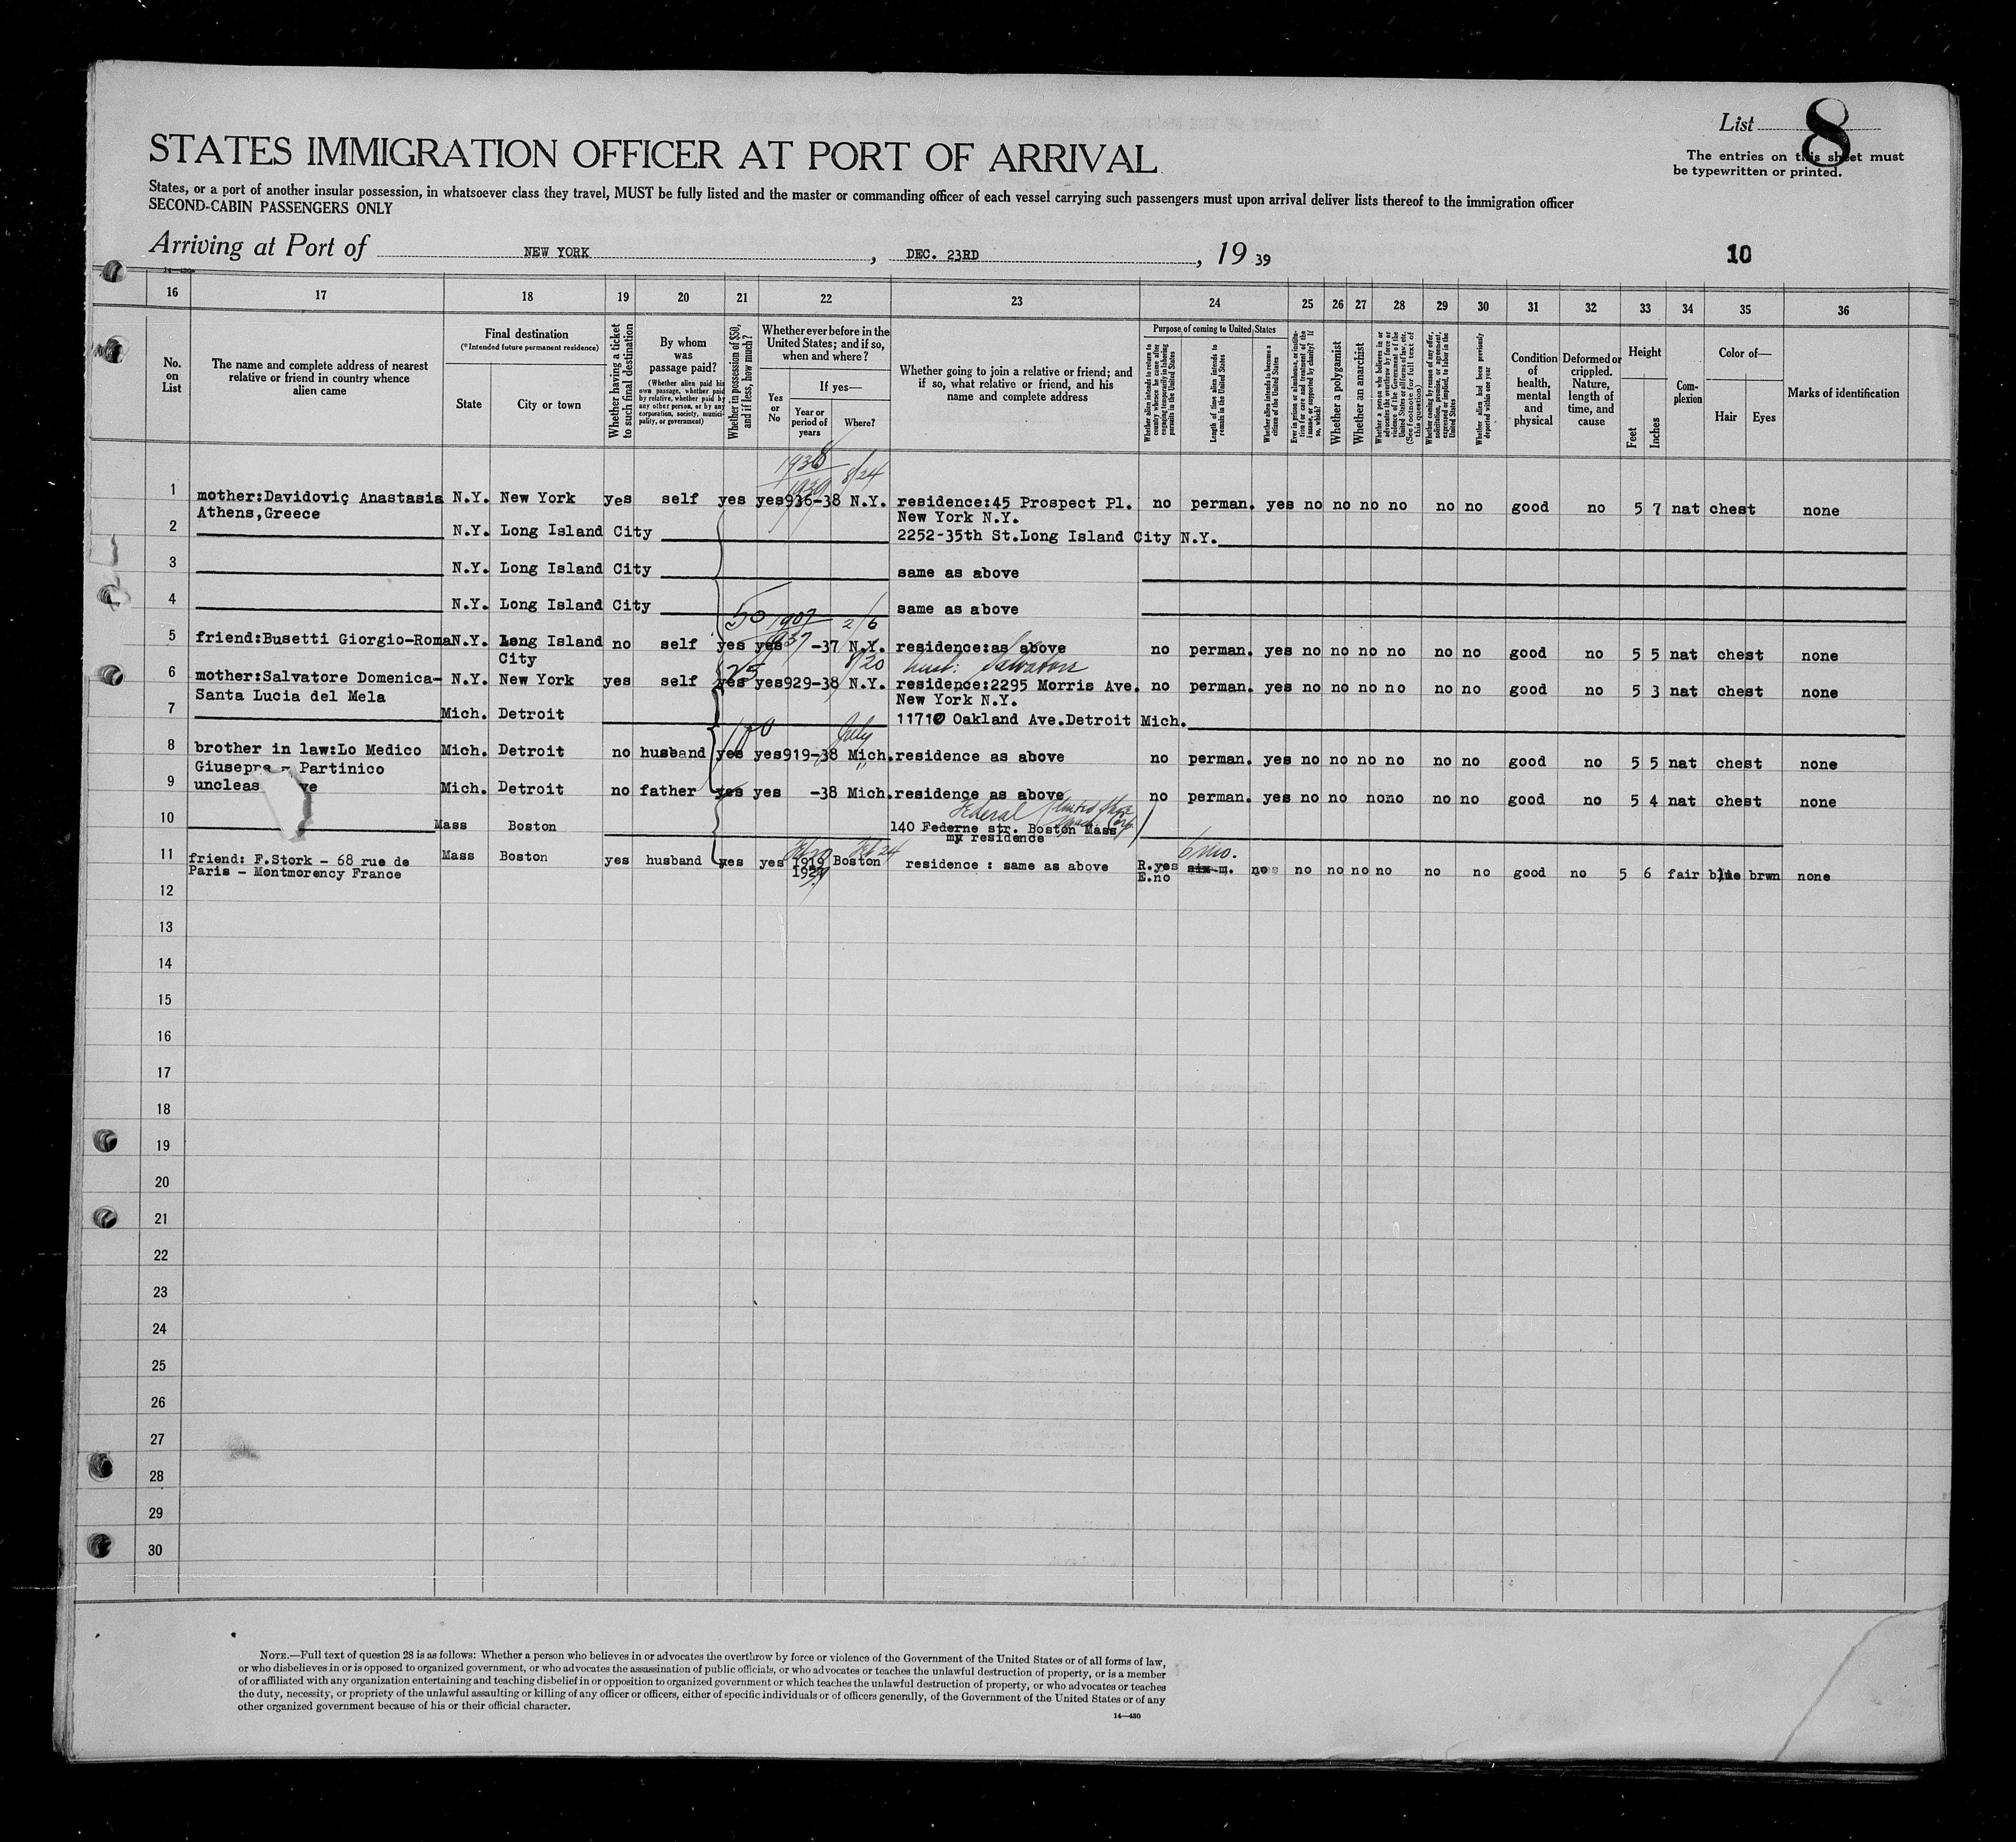 List 8
The entries on this sheet must
be typewritten or printed.
STATES IMMIGRATION OFFICER AT PORT OF ARRIVAL
States, or a port of another insular possession, in whatsoever class they travel, MUST be fully listed and the master or commanding officer of each vessel carrying such passengers must upon arrival deliver lists thereof to the immigration officer
SECOND-CABIN PASSENGERS ONLY
Arriving at Port of NEW YORK , DEC. 23RD , 19 39 10
14—430
16 17 18 19 20 21 22 23 24 25 26 27 28 29 30 31 32 33 34 35 36
No. on List
The name and complete address of nearest relative or friend in country whence alien came
Final destination
(*Intended future permanent residence)
State
City or town
Whether having a ticket to such final destination
By whom was passage paid?
(Whether alien paid his own passage, whether paid by relative, whether paid by any other person, or by any corporation, society, municipality, or government)
Whether in possession of $50, and if less, how much?
Whether ever before in the United States; and if so, when and where?
Yes or No
If yes—
Year or period of years
Where?
Whether going to join a relative or friend; and if so, what relative or friend, and his name and complete address
Purpose of coming to United States
Whether alien intends to return to country whence he came after engaging temporarily in laboring pursuits in the United States
Length of time alien intends to remain in the United States
Whether alien intends to become a citizen of the United States
Ever in prison or almshouse, or institution for care and treatment of the insane, or supported by charity? If so, which?
Whether a polygamist
Whether an anarchist
Whether a person who believes in or advocates the overthrow by force or violence of the Government of the United States or all forms of law, etc. (See footnote for full text of this question)
Whether coming by reason of any offer, solicitation, promise, or agreement, expressed or implied, to labor in the United States
Whether alien had been previously deported within one year
Condition of health, mental and physical
Deformed or crippled. Nature, length of time, and cause
Height
Feet
Inches
Complexion
Color of—
Hair
Eyes
Marks of identification
1938 8/24
1939
1 mother:Davidoviç Anastasia N.Y. New York yes self yes yes 936-38 N.Y. residence:45 Prospect Pl. no perman. yes no no no no no no good no 5 7 nat chest none
Athens,Greece New York N.Y.
2 N.Y. Long Island City 2252-35th St.Long Island City N.Y.
3 N.Y. Long Island City same as above
4 N.Y. Long Island City same as above
50 1907 2/6
5 friend:Busetti Giorgio-Roma N.Y. Long Island no self yes yes 1937 -37 N.Y. residence:as above no perman. yes no no no no no no good no 5 5 nat chest none
City
25 8/20 husb: Salvatore
6 mother:Salvatore Domenica- N.Y. New York yes self yes yes 929-38 N.Y. residence:2295 Morris Ave. no perman. yes no no no no no no good no 5 3 nat chest none
Santa Lucia del Mela New York N.Y.
7 Mich. Detroit 11710 Oakland Ave.Detroit Mich.
100 July
8 brother in law:Lo Medico Mich. Detroit no husband yes yes 919-38 Mich. residence as above no perman. yes no no no no no no good no 5 5 nat chest none
Giuseppe - Partinico "
9 uncle Mich. Detroit no father yes yes -38 Mich. residence as above no perman. yes no no no no no no good no 5 4 nat chest none
Federal United Shoe Mach. Corp.
10 Mass Boston 140 Federne str. Boston Mass
my residence
6 mo.
11 friend: F.Stork - 68 rue de Mass Boston yes husband yes yes 1919 Boston residence : same as above R.yes six m. no no no no no no no good no 5 6 fair blue brwn none
Paris - Montmorency France 1927 E.no
12
13
14
15
16
17
18
19
20
21
22
23
24
25
26
27
28
29
30
NOTE.—Full text of question 28 is as follows: Whether a person who believes in or advocates the overthrow by force or violence of the Government of the United States or of all forms of law,
or who disbelieves in or is opposed to organized government, or who advocates the assassination of public officials, or who advocates or teaches the unlawful destruction of property, or is a member
of or affiliated with any organization entertaining and teaching disbelief in or opposition to organized government or which teaches the unlawful destruction of property, or who advocates or teaches
the duty, necessity, or propriety of the unlawful assaulting or killing of any officer or officers, either of specific individuals or of officers generally, of the Government of the United States or of any
other organized government because of his or their official character.
14—430